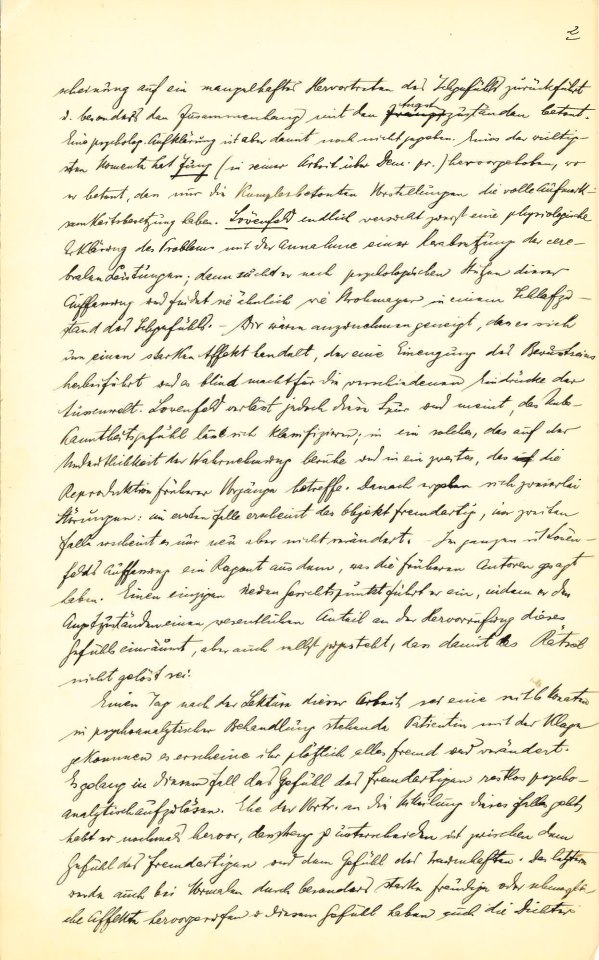 2
scheinung auf ein mangelhaftes Hervortreten des Ichgefühls zurückführt
u. besonders den Zusammenhang mit den Angstzuständen betont.
Eine psycholog. Aufklärung ist aber damit noch nicht gegeben. Eines der wichtig-
sten Momente hat Jung (in seiner Arbeit über Dem. pr.) hervorgehoben, wo
er betont, dass nur die Komplexbetonten Vorstellungen die volle Aufmerk-
samkeitsbesetzung haben. Lövenfeld endlich versucht zuerst eine physiologische
Erklärung des Problems mit der Annahme einer Herabsetzung der cere-
bralen Leistungen; dann sucht er nach psychologischen Stützen dieser
Auffassung und findet sie ähnlich wie Strohmayer in einem Schlafzu-
stand des Ichgefühls. – Wir wären anzunehmen geneigt, dass es sich
um einen starken Affekt handelt, der eine Einengung des Bewusstseins
herbeiführt und es blind macht für die verschiedenen Eindrücke der
Aussenwelt. Lövenfeld verlässt jedoch diese Spur und meint, das Unbe-
kanntheitsgefühl lasse sich klassifizieren: in ein solches, das auf der
Undeutlichkeit der Wahrnehmung beruhe und in ein zweites, das die
Reproduktion früherer Vorgänge betreffe. Danach ergeben sich zweierlei
Störungen: im ersten Falle erscheint das Objekt fremdartig, im zweiten
Falle erscheint es nur neu aber nicht verändert. – Im ganzen ist Löven-
felds Auffassung ein Ragout aus dem, was die früheren Autoren gesagt
haben. Einen einzigen neuen Gesichtspunkt führt er ein, indem er den
Angstzuständen einen wesentlichen Anteil an der Hervorrufung dieses
Gefühls einräumt, aber auch selbst zugesteht, dass damit das Rätsel
nicht gelöst sei.
Einen Tag nach der Lektüre dieser Arbeit sei eine seit 6 Monaten
in psychoanalytischer Behandlung stehende Patientin mit der Klage
gekommen es erscheine ihr plötzlich alles fremd und verändert.
Es gelang in diesem Fall das Gefühl des Fremdartigen restlos psycho-
analytisch aufzulösen. Ehe der Vortr. an die Mitteilung dieses Falles geht,
hebt er nochmals hervor, dass streng zu unterscheiden ist zwischen dem
Gefühl des Fremdartigen und dem Gefühl des Traumhaften. Das letztere
werde auch bei Normalen durch besonders starke freudige oder schmerzli-
che Affekte hervorgerufen u diesem Gefühl haben auch die Dichter